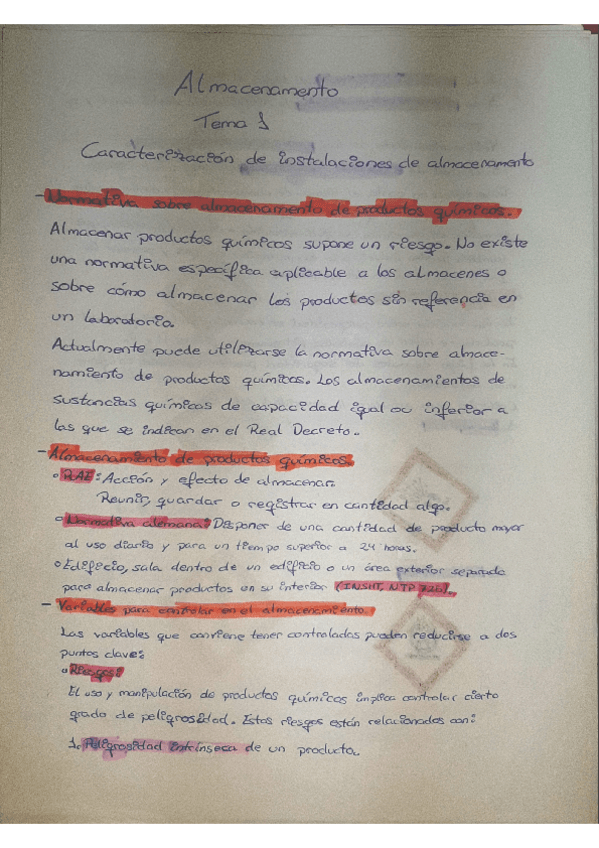 Almacenamento
Tema 1
Caracterización de instalaciones de almacenamento
- Normativa sobre almacenamento de productos químicos.
Almacenar productos químicos supone un riesgo. No existe
una normativa específica aplicable a los almacenes o
sobre cómo almacenar los productos sin referencia en
un laboratorio.
Actualmente puede utilizarse la normativa sobre almace-
namiento de productos químicos. Los almacenamientos de
sustancias químicas de capacidad igual ou inferior a
las que se indican en el Real Decreto.
- Almacenamento de productos químicos.
o RAE: Acción y efecto de almacenar.
Reunir, guardar o registrar en cantidad algo.
o Normativa alemana: Disponer de una cantidad de producto mayor
al uso diario y para un tiempo superior a 24 horas.
o Edificio, sala dentro de un edificio o un área exterior separada
para almacenar productos en su interior (INSHT, NTP 725).
- Variables para controlar en el almacenamiento.
Las variables que conviene tener controladas pueden reducirse a dos
puntos clave:
o Riesgos:
El uso y manipulación de productos químicos implica controlar cierto
grado de peligrosidad. Estos riesgos están relacionados con:
1. Peligrosidad intrínseca de un producto.